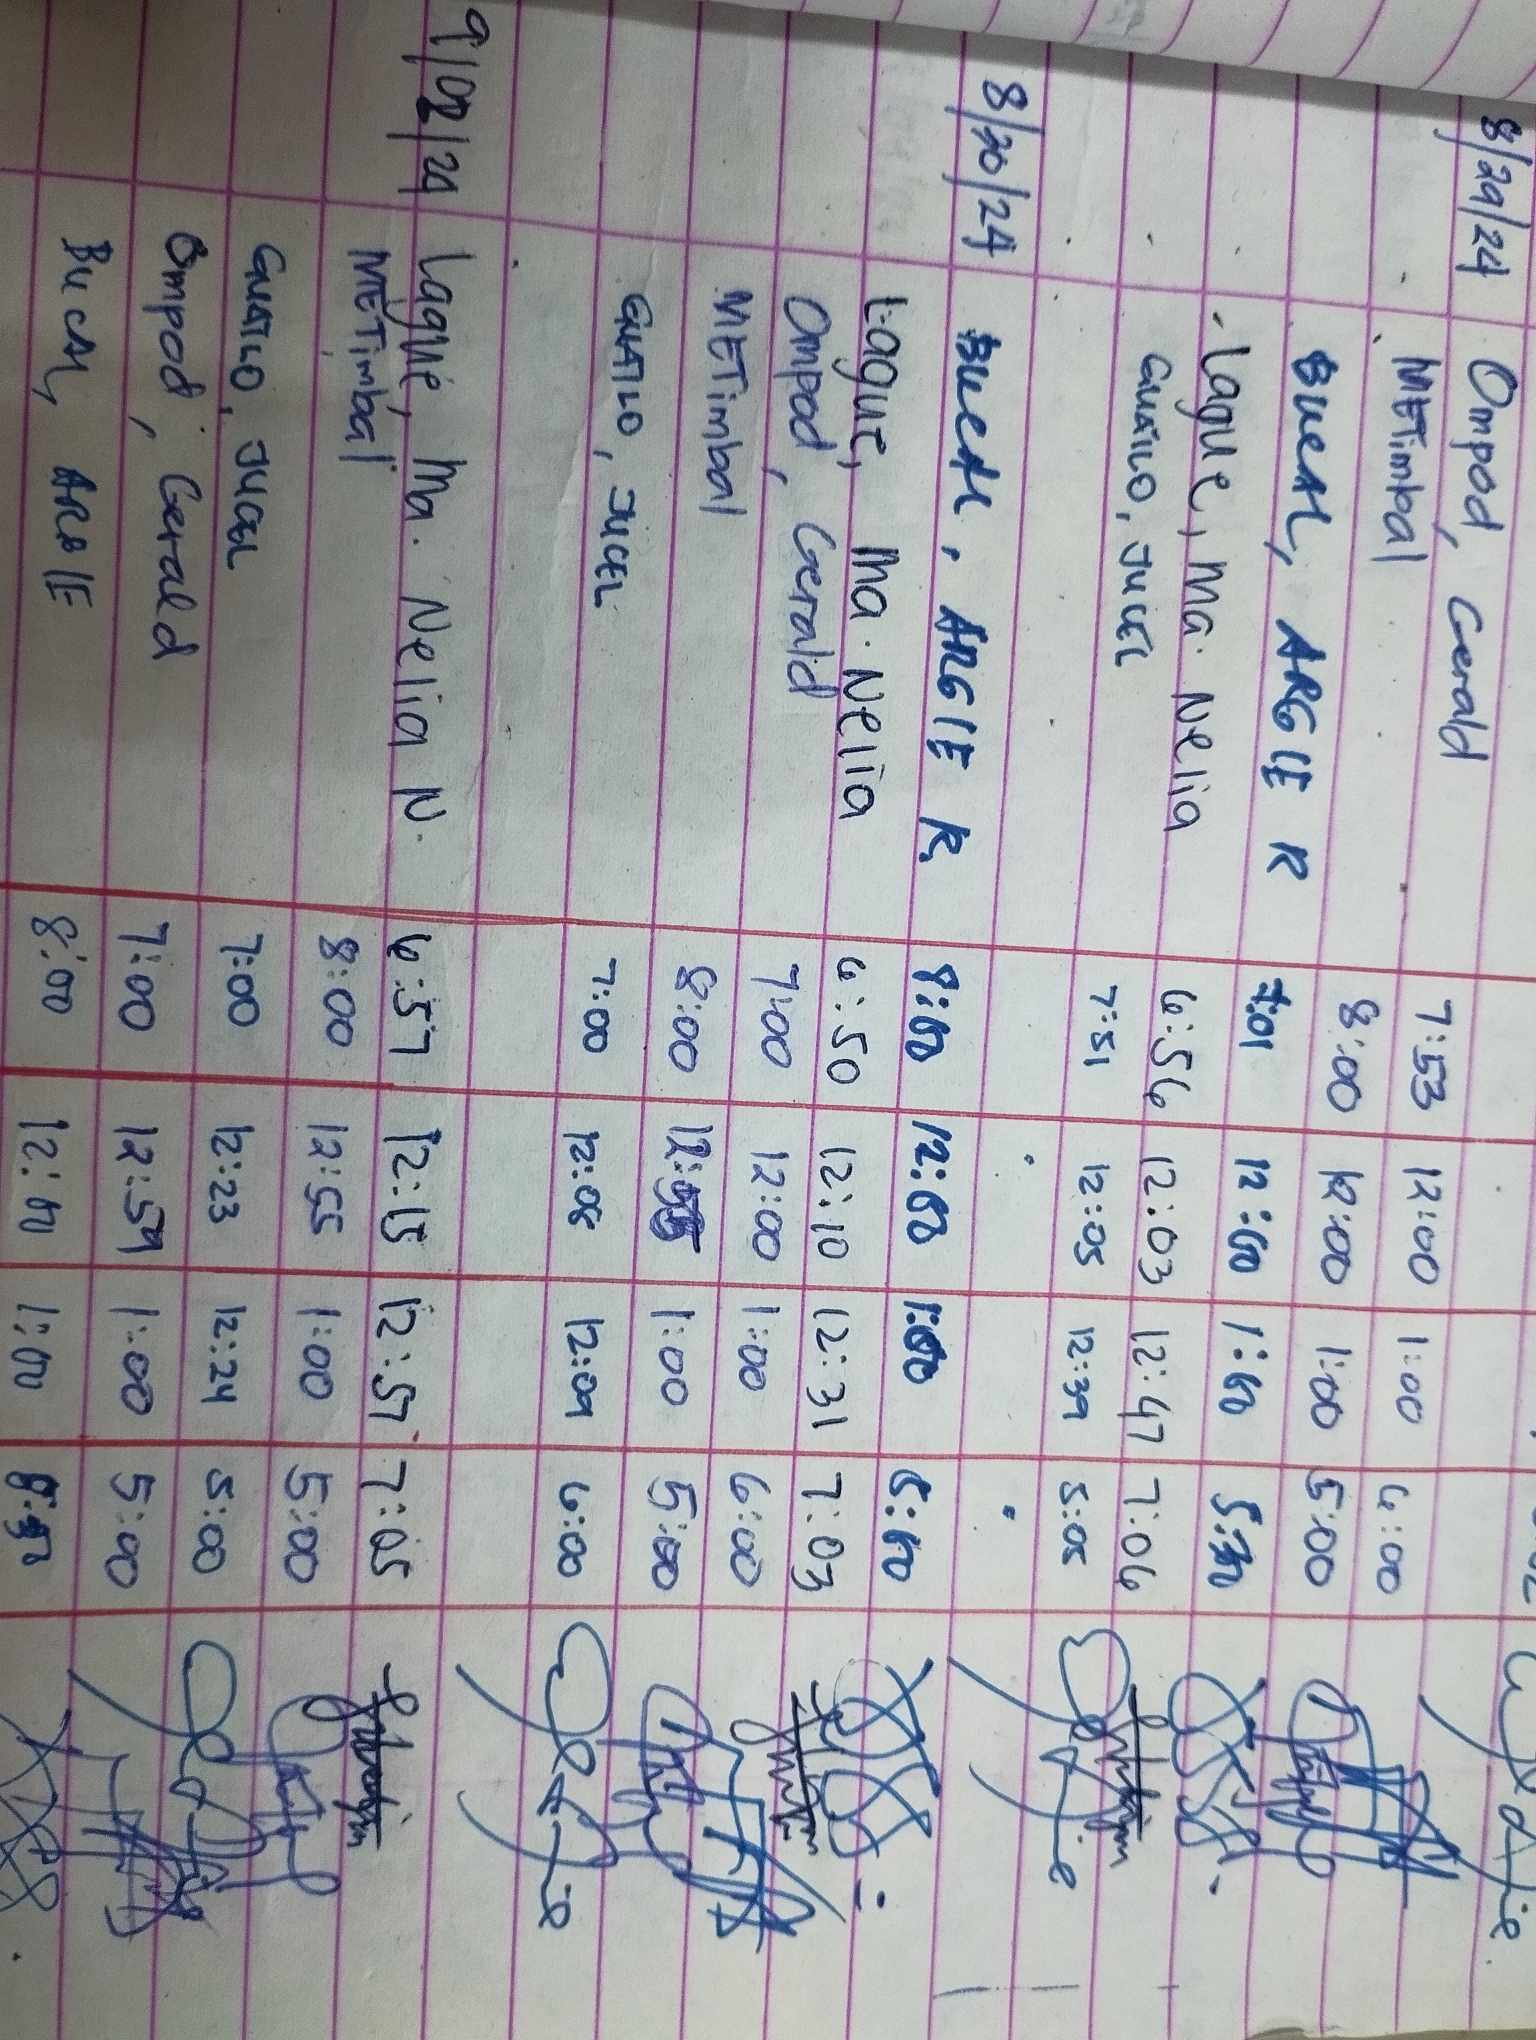 8/29/24 Ompod, Gerald 7:53 12:00 1:00 6:00
METimbal 8:00 12:00 1:00 5:00
BUCAL, ARGIE R 7:01 12:00 1:00 5:30
Lague, Ma. Nelia 6:56 12:03 12:47 7:06
GUATLO, JUCEL 7:51 12:05 12:39 5:05
8/30/24 BUCAL, ARGIE R. 8:00 12:00 1:00 5:00
Lague, Ma. Nelia 6:50 12:10 12:31 7:03
Ompod, Gerald 7:00 12:00 1:00 6:00
METimbal 8:00 12:55 1:00 5:00
GUATLO, JUCEL 7:00 12:08 12:09 6:00
9/02/24 Lague, Ma. Nelia N. 6:57 12:15 12:57 7:05
METimbal 8:00 12:55 1:00 5:00
GUATLO, JUCEL 7:00 12:23 12:24 5:00
Ompod, Gerald 7:00 12:59 1:00 5:00
BUCAL, ARGIE 8:00 12:00 1:00